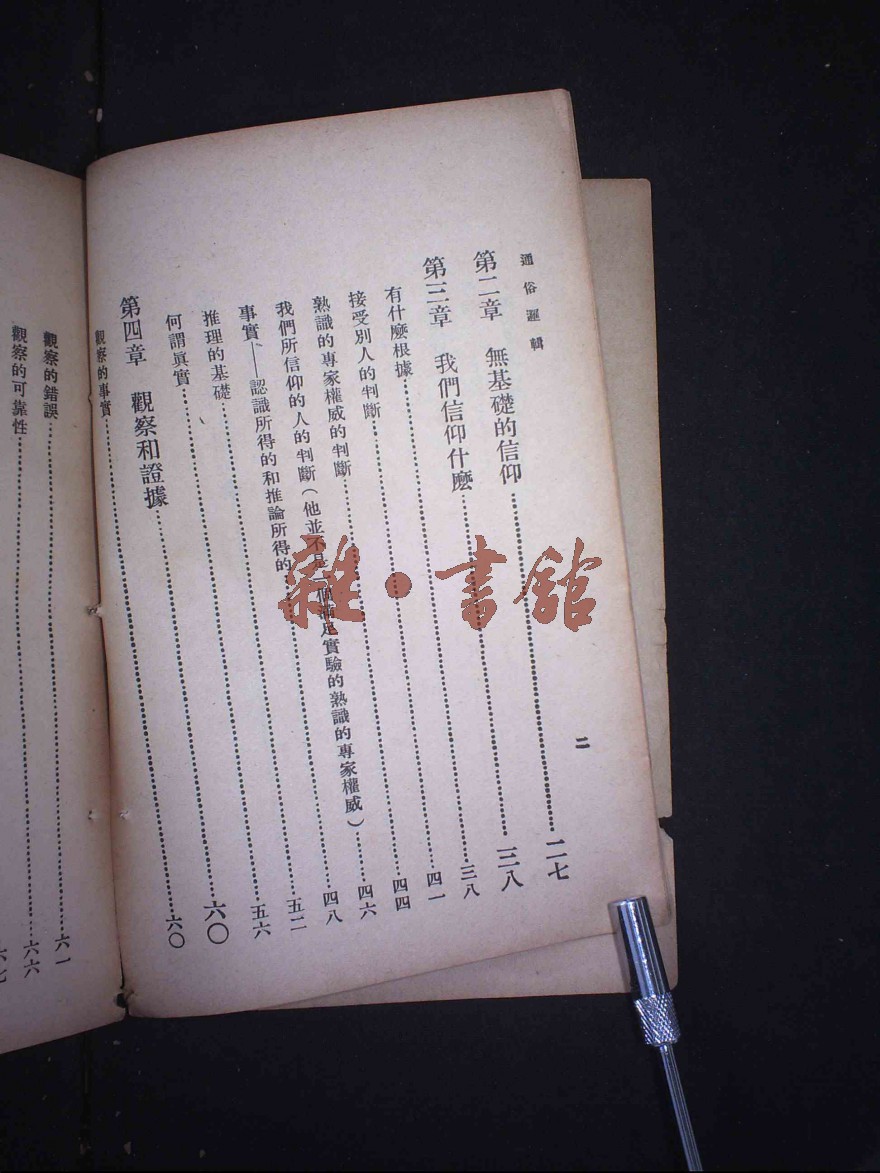 通俗邏輯
二
第二章 無基礎的信仰……二七
第三章 我們信仰什麼……三八
有什麼根據……三八
接受別人的判斷……四一
熟識的專家權威的判斷……四四
我們所信仰的人的判斷（他並不是一個滿足實驗的熟識的專家權威）……四六
事實——認識所得的和推論所得的……四八
推理的基礎……五二
何謂眞實……五六
第四章 觀察和證據……六〇
觀察的事實……六〇
觀察的錯誤……六一
觀察的可靠性……六六
六七
雜·書館